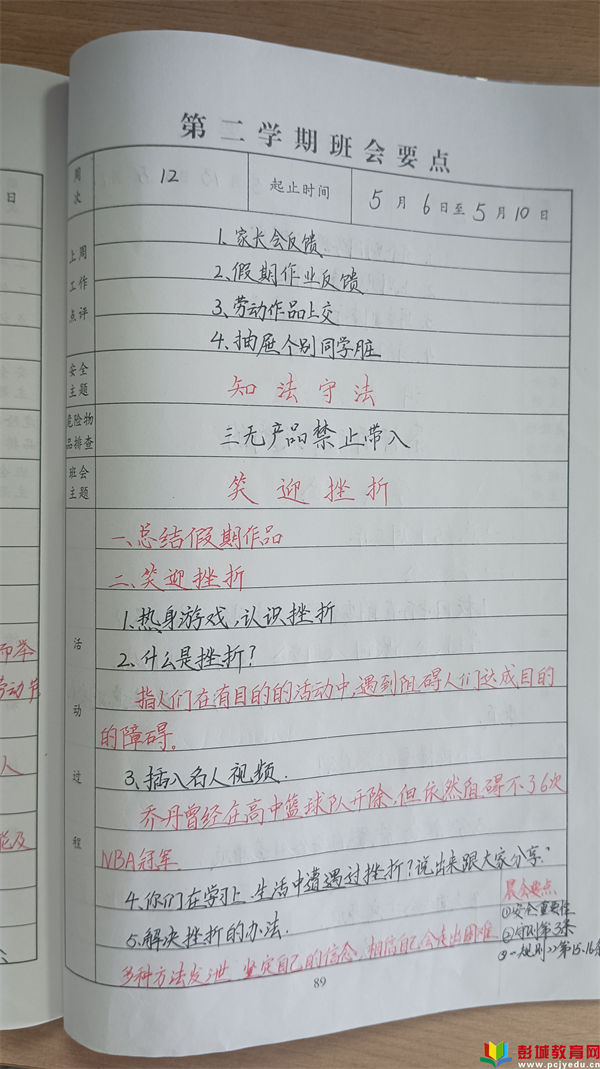 第二学期班会要点
周次 12 起止时间 5月6日至5月10日
上周工作点评
1、家长会反馈
2、假期作业反馈
3、劳动作品上交
4、抽屉个别同学脏
安全主题 知法守法
危险物品排查 三无产品禁止带入
班会主题 笑迎挫折
活动过程
一、总结假期作品
二、笑迎挫折
1、热身游戏,认识挫折
2、什么是挫折?
指人们在有目的的活动中,遇到阻碍人们达成目的
的障碍。
3、插入名人视频.
乔丹曾经在高中篮球队开除,但依然阻碍不了6次
NBA冠军.
4、你们在学习上、生活中遭遇过挫折?说出来跟大家分享.
5、解决挫折的办法.
多种方法发泄 坚定自己的信念,相信自己会走出困难
晨会要点
①安全重要性
②守则第3条
③一规则>>第15-16条
89
日
而举
劳动节
人
能及
彭城教育网
www.pcjyedu.cn